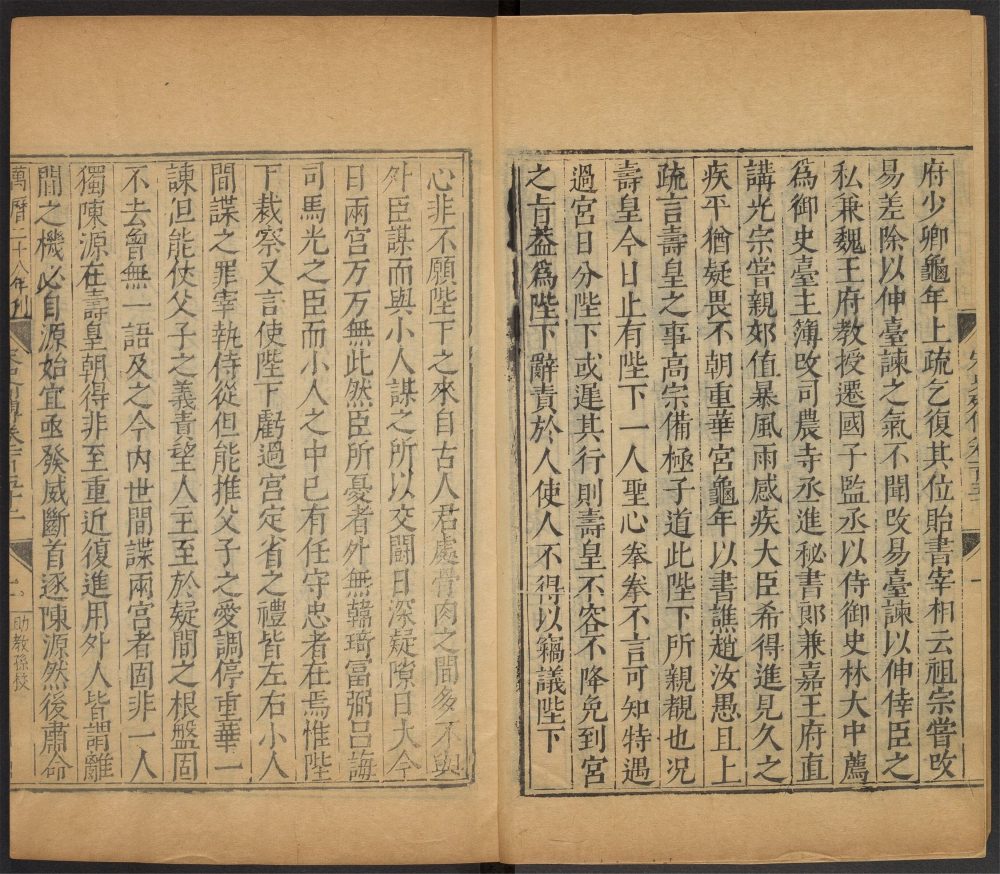 府少卿龜年上疏乞復其位貽書宰相云祖宗嘗改
易差除以伸臺諫之氣不聞改易臺諫以伸倖臣之
私兼魏王府教授遷國子監丞以侍御史林大中薦
為御史臺主簿改司農寺丞進秘書郎兼嘉王府直
講光宗嘗親郊值暴風雨感疾大臣希得進見久之
疾平猶疑畏不朝重華宮龜年以書譙趙汝愚且上
疏言壽皇之事高宗備極子道此陛下所親覩也况
壽皇今日止有陛下一人聖心拳拳不言可知特遇
過宮日分陛下或遲其行則壽皇不容不降免到宮
之旨葢為陛下辭責於人使人不得以竊議陛下
心非不願陛下之來自古人君處骨肉之間多不與
外臣謀而與小人謀之所以交鬪日深疑隙日大今
日兩宮万万無此然臣所憂者外無韓琦富弼吕誨
司馬光之臣而小人之中已有任守忠者在焉惟陛
下裁察又言使陛下虧過宮定省之禮皆左右小人
間諜之罪宰執侍從但能推父子之愛調停重華一
諫但能仗父子之義責望人主至於疑間之根盤固
不去曾無一語及之今内世間諜兩宮者固非一人
獨陳源在壽皇朝得非至重近復進用外人皆謂離
間之機必自源始宜亟發威斷首逐陳源然後肅命
萬曆二十八年刊
助教孫校